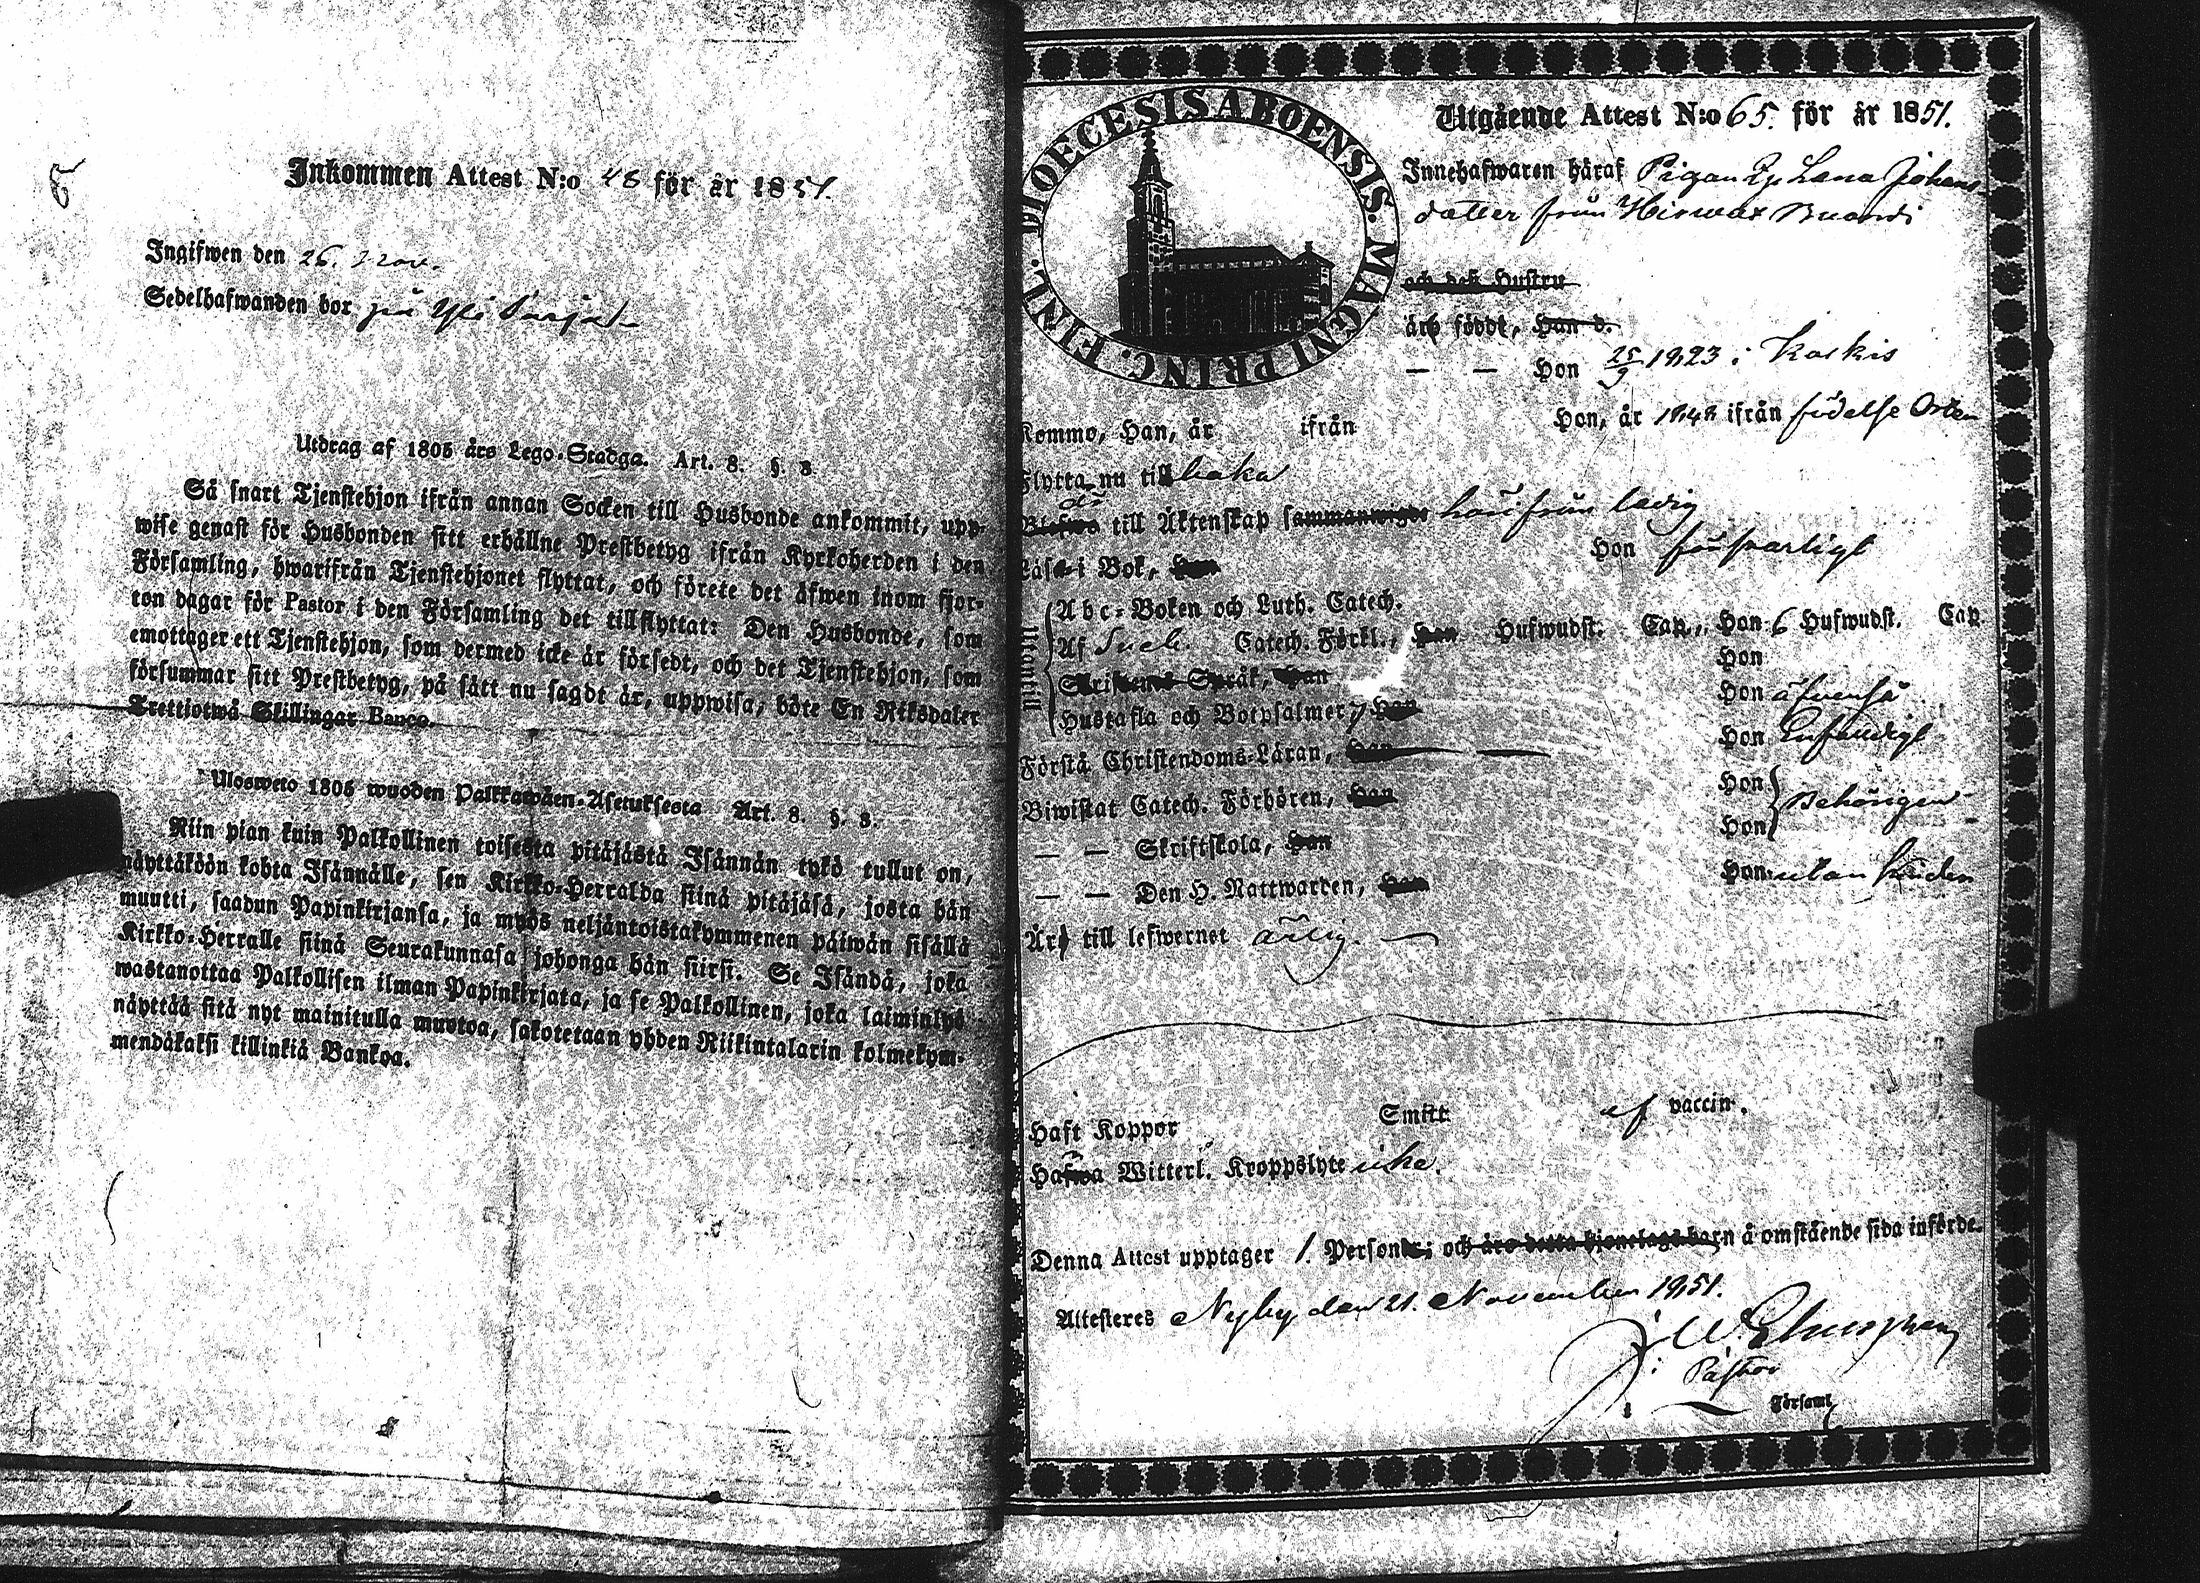 Inkommen Attest N:o 48 för år 1851.
Ingifwen den 26. Nov.
Sedelhafwanden bor på Yli
Utdrag af 1805 års Lego-Stadga. Art. 8. §. 8.
Så snart Tjenstehjon ifrån annan Socken till Husbonde ankommit, upp-
wise genast för Husbonden sitt erhållne Prestbetyg ifrån Kyrkoherden i den
Församling, hwarifrån Tjenstehjonet flyttat, och förete det äfwen inom fjor-
ton dagar för Pastor i den Församling det tillflyttat: Den Husbonde, som
emottager ett Tjenstehjon, som dermed icke är försedt, och det Tjenstehjon, som
försummar sitt Prestbetyg, på sätt nu sagdt är, uppwisa, böte En Riksdaler
Trettiotwå Skillingar Banco.
Ulosweto 1805 wuoden Palkkawäen-Asetuksesta Art. 8. §. 8.
Niin pian kuin Palkollinen toisesta pitäjästä Isännän tykö tullut on,
näyttäköön kohta Isännälle, sen Kirkko-Herralda siinä pitäjäsä, josta hän
muutti, saadun Papinkirjansa, ja myös neljäntoistakymmenen päiwän sisällä
Kirkko-Herralle siinä Seurakunnasa johonga hän siirsi. Se Isändä, joka
wastanottaa Palkollisen ilman Papinkirjata, ja se Palkollinen, joka laiminlyö
näyttää sitä nyt mainitulla muotoa, sakotetaan yhden Riikintalarin kolmekym-
mendäkaksi killinkiä Bankoa.
DIOECESIS ABOENSIS. MAGNI PRINC. FINL.
Utgående Attest N:o 65. för år 1851.
Innehafwaren häraf Pigan Lena Johans
datter från
och dess Hustru
äro född, Han d.
— — Hon 25/9 1823 i Koskis
Kommo, Han, år ifrån Hon, år 1848 ifrån födelse Orten
Flytta nu tillbaka
till Äktenskap härifrån ledig
Läsa i Bok, Han Hon försvarligt
Utantill
Abc-Boken och Luth. Catech.
Af Sveb. Catech. Förkl., Han Hufwudst. Cap., Hon 6 Hufwudst. Cap.
Skriftenes Språk, Han Hon
Hustafla och Botpsalmer, Han Hon äfvenså
Förstå Christendoms-Läran, Han Hon Enfaldigt
Biwistat Catech. Förhören, Han Hon Behörigen
— — Skriftskola, Han Hon
— — Den H. Nattwarden, Han Hon utan hinder
Är till lefwernet ärlig.
Haft Koppor Smitt af vaccin.
Hafwa Witterl. Kroppslyte icke.
Denna Attest upptager 1. Person; och äro detta hjonelags barn å omstående sida införde.
Attesteres Nyby den 21. November 1851.
Pastor
Församl.